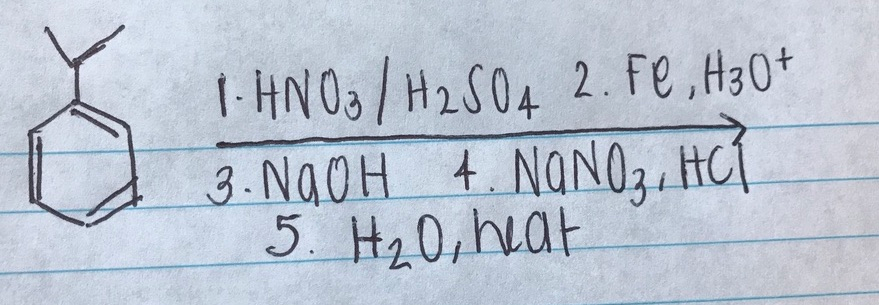 1. HNO3/H2SO4 2. Fe, H3O+
3. NaOH 4. NaNO3, HCl
5. H2O, heat